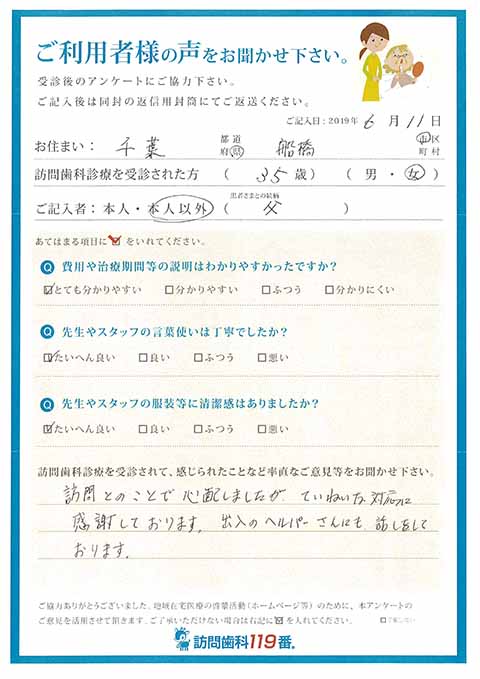 ご利用者様の声をお聞かせ下さい。
受診後のアンケートにご協力下さい。
ご記入後は同封の返信用封筒にてご返送ください。
ご記入日：2019年 6 月 11 日
お住まい： 千葉 都道府県 船橋 市区町村
訪問歯科診療を受診された方 （ 35 歳） （ 男・女 ）
ご記入者：本人・本人以外 （ 患者さまとの続柄 父 ）
あてはまる項目に☑をいれてください。
Q 費用や治療期間等の説明はわかりやすかったですか？
☑とても分かりやすい □分かりやすい □ふつう □分かりにくい
Q 先生やスタッフの言葉使いは丁寧でしたか？
☑たいへん良い □良い □ふつう □悪い
Q 先生やスタッフの服装等に清潔感はありましたか？
☑たいへん良い □良い □ふつう □悪い
訪問歯科診療を受診されて、感じられたことなど率直なご意見等をお聞かせ下さい。
訪問とのことで心配しましたが ていねいな対応に
感謝しております。出入のヘルパーさんにも 話しをして
おります。
ご協力ありがとうございました。地域在宅医療の啓蒙活動（ホームページ等）のために、本アンケートの
ご意見を活用させて頂きます。ご了承いただけない場合は右記に☑を入れてください。
訪問歯科119番®